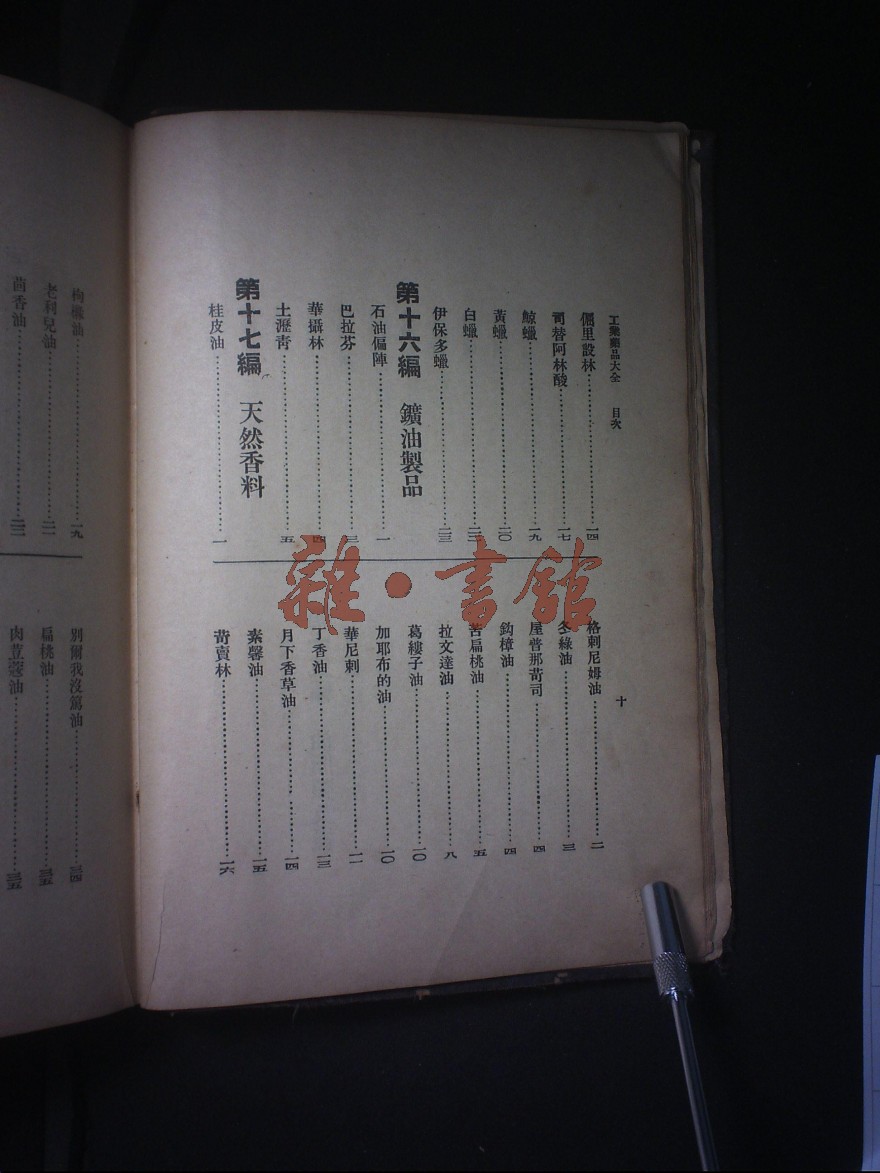 工業藥品大全 目次
倔里設林……一四
司替阿林酸……一七
鯨蠟……一九
黃蠟……二〇
白蠟……二三
伊保多蠟……二三
第十六編 鑛油製品
石油偏陣……一
巴拉芬……三
華攝林……四
土瀝青……五
第十七編 天然香料
桂皮油……一
格剌尼姆油……二
冬綠油……三
屋普那苛司……四
鈎樟油……四
苦扁桃油……五
拉文達油……八
葛縷子油……一〇
加耶布的油……一〇
華尼剌……一一
丁香油……一三
月下香草油……一四
素馨油……一五
苛賣林……一六
十
枸櫞油……一九
老利兒油……二一
茴香油……二三
別爾我沒篤油……三四
扁桃油……三五
肉荳蔻油……三五
雜·書館